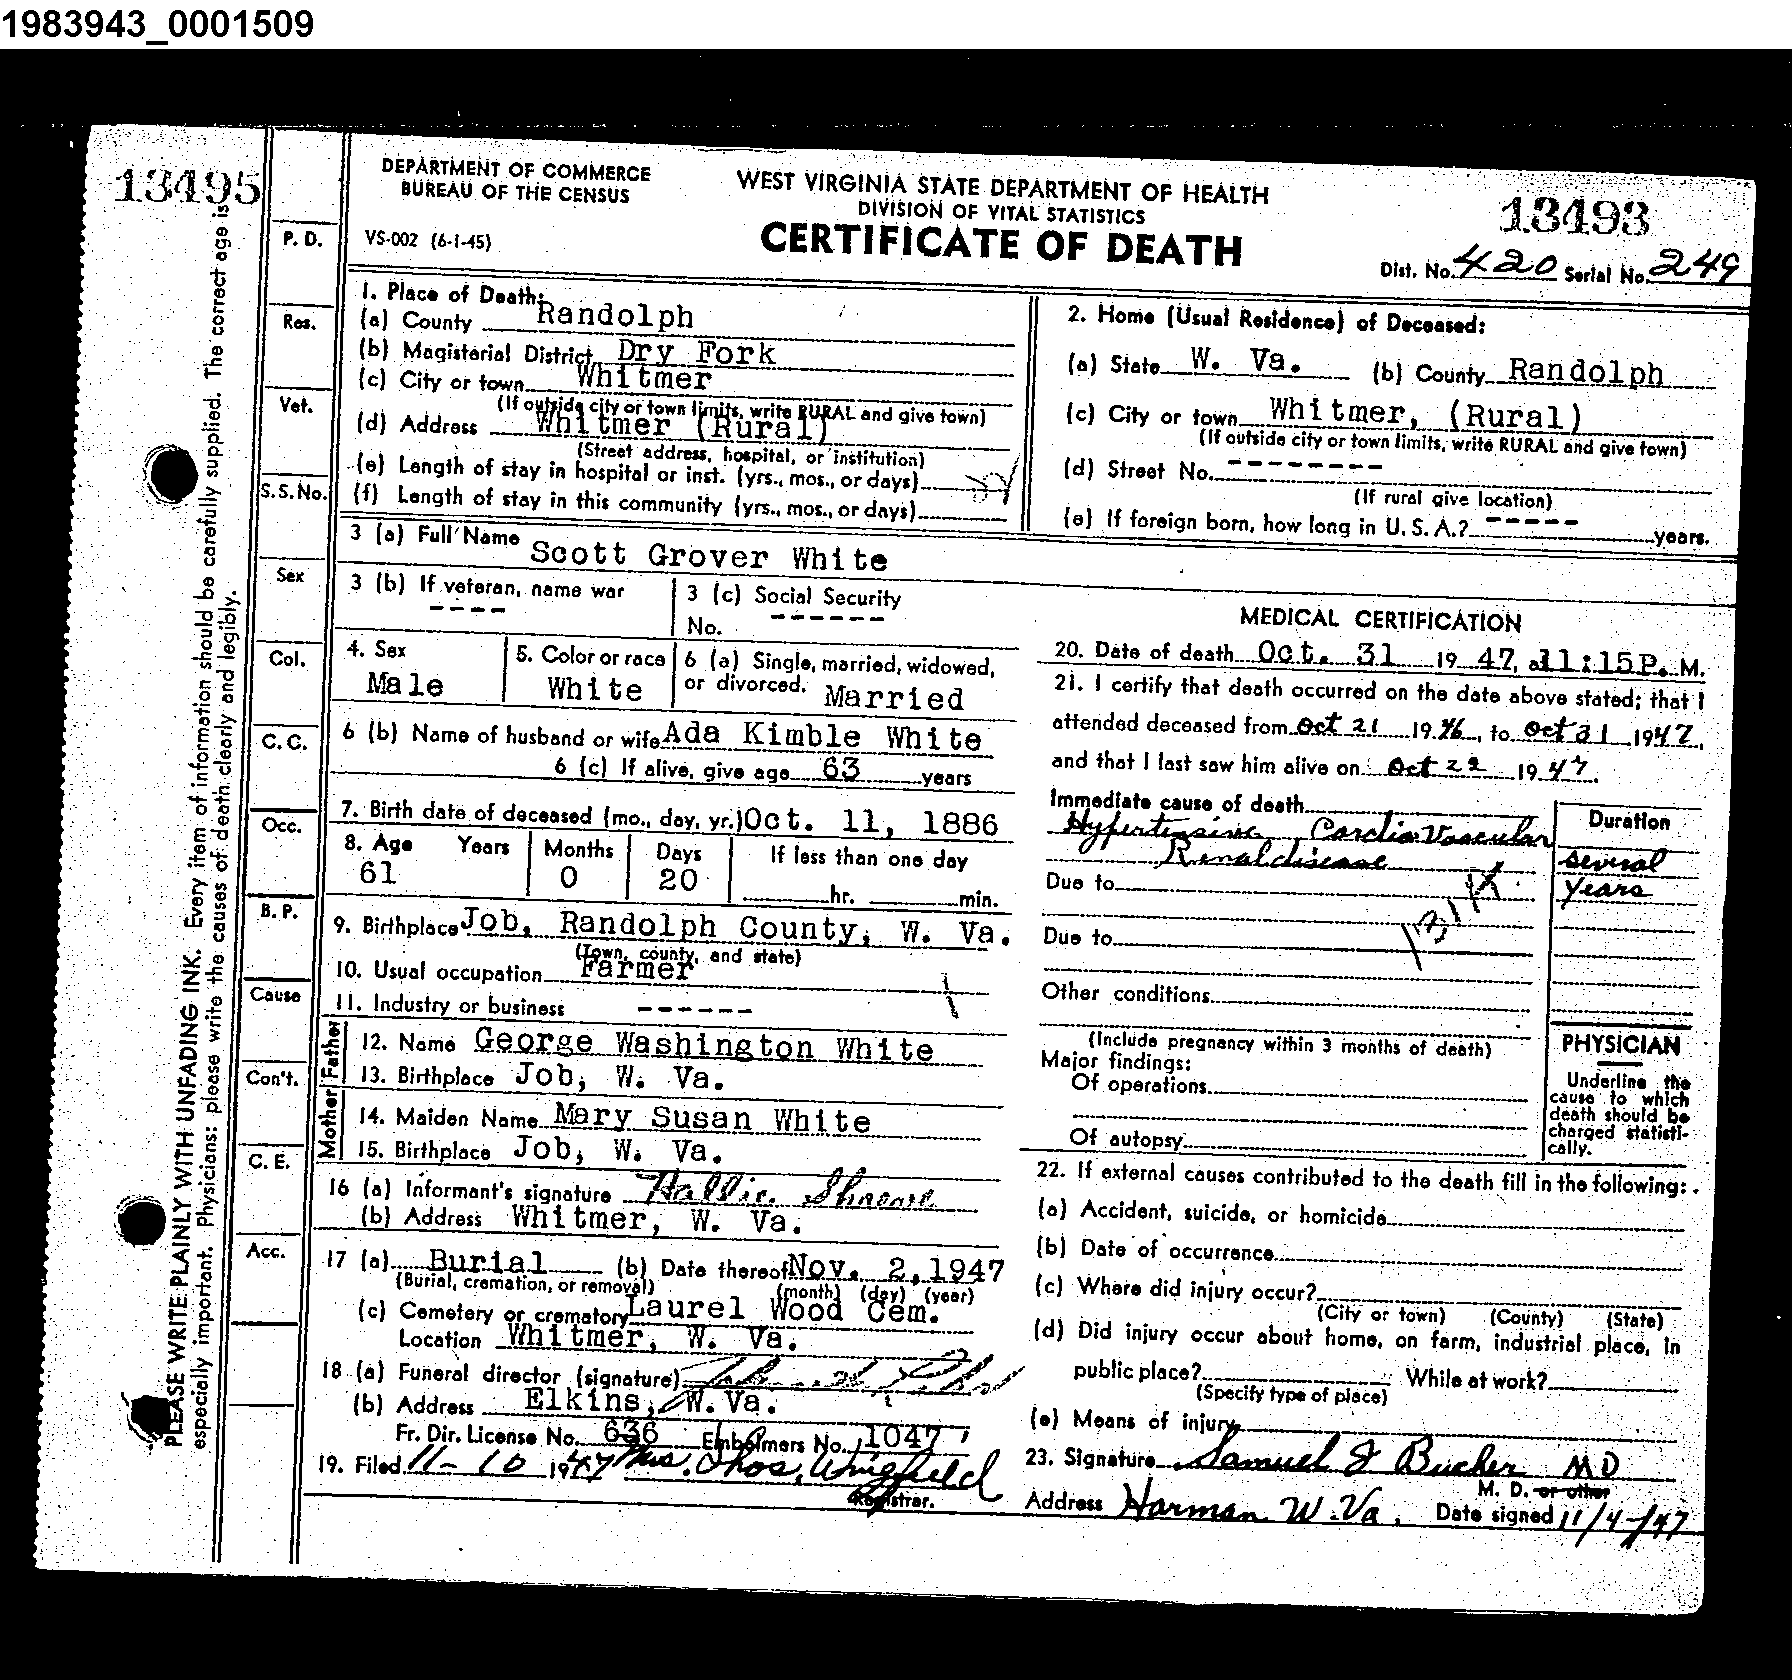 1983943_0001509
13495
13493
DEPARTMENT OF COMMERCE
BUREAU OF THE CENSUS
VS-002 (6-1-45)
WEST VIRGINIA STATE DEPARTMENT OF HEALTH
DIVISION OF VITAL STATISTICS
CERTIFICATE OF DEATH
Dist. No. 420 Serial No. 249
PLEASE WRITE PLAINLY WITH UNFADING INK. Every item of information should be carefully supplied. The correct age is
especially important. Physicians: please write the causes of death clearly and legibly.
P. D.
Res.
Vet.
S.S.No.
Sex
Col.
C. C.
Occ.
B. P.
Cause
Con't.
C. E.
Acc.
1. Place of Death:
(a) County Randolph
(b) Magisterial District Dry Fork
(c) City or town Whitmer
(If outside city or town limits, write RURAL and give town)
(d) Address Whitmer (Rural)
(Street address, hospital, or institution)
(e) Length of stay in hospital or inst. (yrs., mos., or days)
(f) Length of stay in this community (yrs., mos., or days)
2. Home (Usual Residence) of Deceased:
(a) State W. Va. (b) County Randolph
(c) City or town Whitmer, (Rural)
(If outside city or town limits, write RURAL and give town)
(d) Street No. --------
(If rural give location)
(e) If foreign born, how long in U. S. A.? ----- years.
3 (a) Full Name Scott Grover White
3 (b) If veteran, name war
----
3 (c) Social Security
No. ------
4. Sex
Male
5. Color or race
White
6 (a) Single, married, widowed,
or divorced. Married
6 (b) Name of husband or wife Ada Kimble White
6 (c) If alive, give age 63 years
7. Birth date of deceased (mo., day, yr.) Oct. 11, 1886
8. Age Years Months Days If less than one day
61 0 20 hr. min.
9. Birthplace Job, Randolph County, W. Va.
(Town, county, and state)
10. Usual occupation Farmer
11. Industry or business ------
Father
12. Name George Washington White
13. Birthplace Job, W. Va.
Mother
14. Maiden Name Mary Susan White
15. Birthplace Job, W. Va.
16 (a) Informant's signature Hallie
(b) Address Whitmer, W. Va.
17 (a) Burial (b) Date thereof Nov. 2, 1947
(Burial, cremation, or removal) (month) (day) (year)
(c) Cemetery or crematory Laurel Wood Cem.
Location Whitmer, W. Va.
18 (a) Funeral director (signature)
(b) Address Elkins, W. Va.
Fr. Dir. License No. 636 Embalmers No. 1047
19. Filed 11-10 1947 Mrs. Thos. Wingfield
Registrar.
MEDICAL CERTIFICATION
20. Date of death Oct. 31 19 47, a 11:15 P. M.
21. I certify that death occurred on the date above stated; that I
attended deceased from Oct 21 1946, to Oct 31 1947,
and that I last saw him alive on Oct 22 1947.
Immediate cause of death
Hypertensive Cardio Vascular
Renal disease
Duration
several
years
Due to
Due to
131X
Other conditions
(Include pregnancy within 3 months of death)
Major findings:
Of operations
Of autopsy
PHYSICIAN
Underline the
cause to which
death should be
charged statisti-
cally.
22. If external causes contributed to the death fill in the following:
(a) Accident, suicide, or homicide
(b) Date of occurrence
(c) Where did injury occur?
(City or town) (County) (State)
(d) Did injury occur about home, on farm, industrial place, in
public place? While at work?
(Specify type of place)
(e) Means of injury
23. Signature Samuel J Bucher MD
M. D. or other
Address Harman W. Va. Date signed 11/4-/47